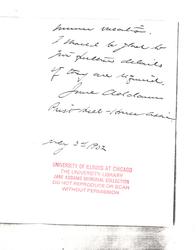 summer vacation.
I should be glad to
give further details
if they are required.
Jane Addams
Hull-House
July 3d 1902
UNIVERSITY OF ILLINOIS AT CHICAGO
THE UNIVERSITY LIBRARY
JANE ADDAMS MEMORIAL COLLECTION
DO NOT REPRODUCE OR SCAN
WITHOUT PERMISSION